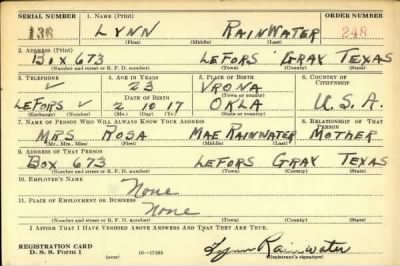 SERIAL NUMBER 1. Name (Print) ORDER NUMBER
136 LYNN RAINWATER 248
(First) (Middle) (Last)
2. Address (Print)
BOX 673 LEFORS GRAY TEXAS
(Number and street or R. F. D. number) (Town) (County) (State)
3. Telephone 4. Age in Years 5. Place of Birth 6. Country of Citizenship
✓ 23 VRONA
Date of Birth (Town or county)
LEFORS ✓ 2 10 17 OKLA U.S.A.
(Exchange) (Number) (Mo.) (Day) (Yr.) (State or country)
7. Name of Person Who Will Always Know Your Address 8. Relationship of That Person
MRS ROSA MAE RAINWATER MOTHER
(Mr., Mrs., Miss) (First) (Middle) (Last)
9. Address of That Person
BOX 673 LEFORS GRAY TEXAS
(Number and street or R. F. D. number) (Town) (County) (State)
10. Employer's Name
None
11. Place of Employment or Business
None
(Number and street or R. F. D. number) (Town) (County) (State)
I Affirm That I Have Verified Above Answers and That They Are True.
REGISTRATION CARD
D. S. S. Form 1 (over) Lynn Rainwater
Registrant's signature)